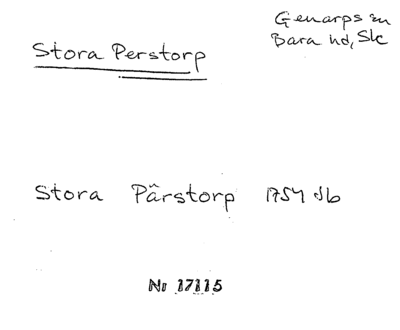 Genarps sn
Bara hd, Sk
Stora Perstorp
Stora Pârstorp 1754 db
Nr 17115